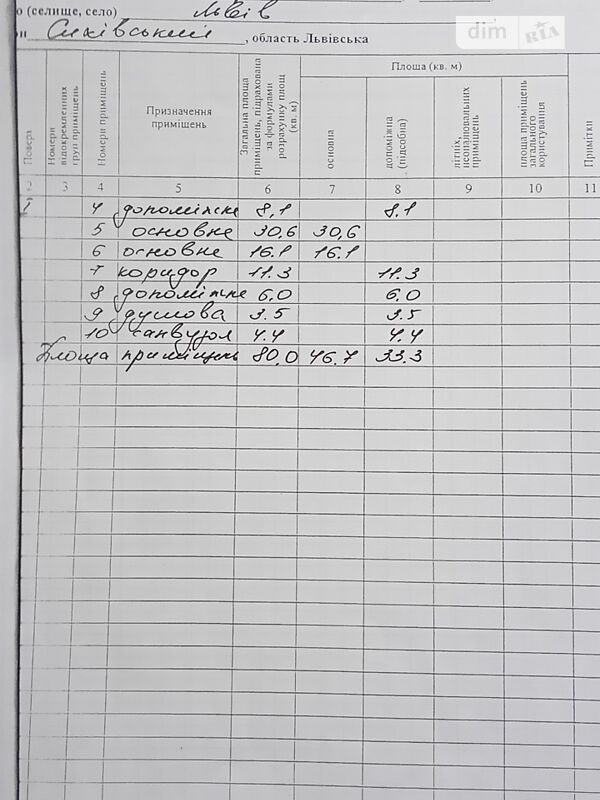 о (селище, село) Львів
Сихівський, область Львівська
dim RIA
Поверх
Номери відокремлених груп приміщень
Номери приміщень
Призначення приміщень
Загальна площа приміщень, підрахована за формулами розрахунку площ (кв. м)
Площа (кв. м)
основна
допоміжна (підсобна)
літніх, неопалювальних приміщень
площа приміщень загального користування
Примітки
2 3 4 5 6 7 8 9 10 11
I 4 допоміжне 8,1 8.1
5 основне 30,6 30,6
6 основне 16.1 16.1
7 коридор 11.3 11.3
8 допоміжне 6.0 6.0
9 душова 3.5 3.5
10 санвузол 4.4 4.4
Площа приміщень 80,0 46.7 33.3